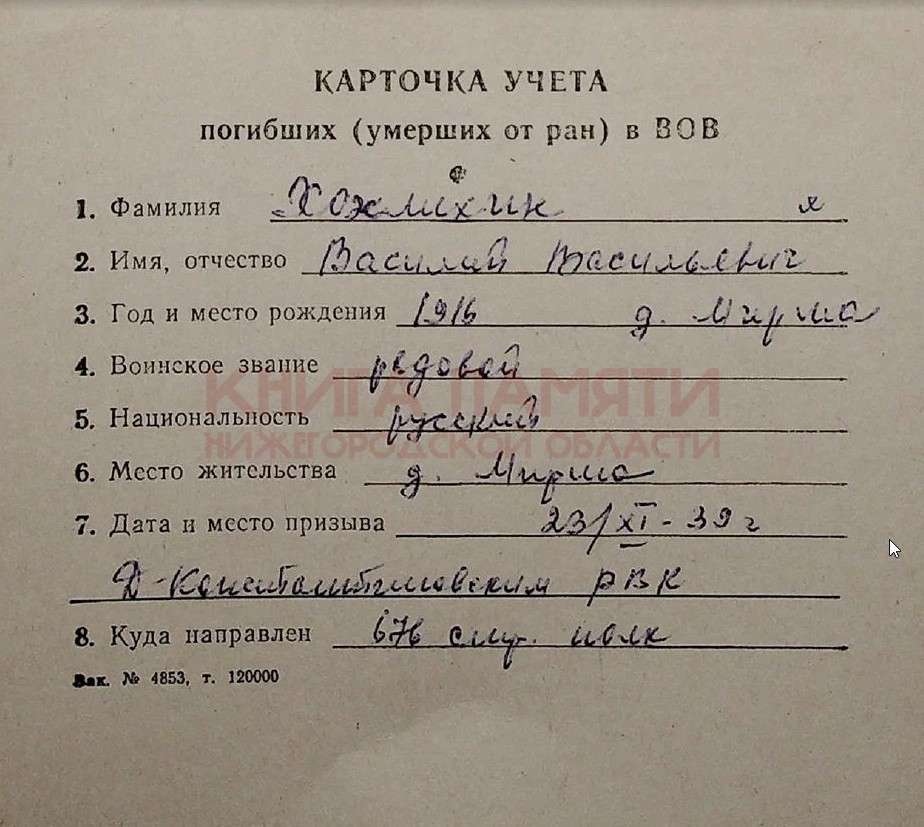 КАРТОЧКА УЧЕТА
погибших (умерших от ран) в ВОВ
1. Фамилия Хожмихин
2. Имя, отчество Василий Васильевич
3. Год и место рождения 1916 д. Мирша
4. Воинское звание рядовой
КНИГА ПАМЯТИ
5. Национальность русский
НИЖЕГОРОДСКОЙ ОБЛАСТИ
6. Место жительства д. Мирша
7. Дата и место призыва 23/XI-39 г
Д-Константиновским РВК
8. Куда направлен 676 стр. полк
Зак. № 4853, т. 120000